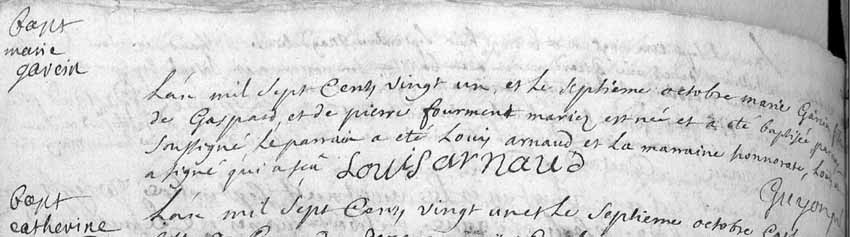 Bapt
marie
gavein
Lán mil sept Cents vingt un et le septieme octobre marie Gavein
de Gaspard et de pierre fourment mariez est née et a eté baptisée par
soussigné le parrain a eté Louis arnaud et La marraine honnorate
a signé qui a sçû Louis arnaud
Bapt
catherine
Lán mil sept Cents vingt un et le septieme octobre